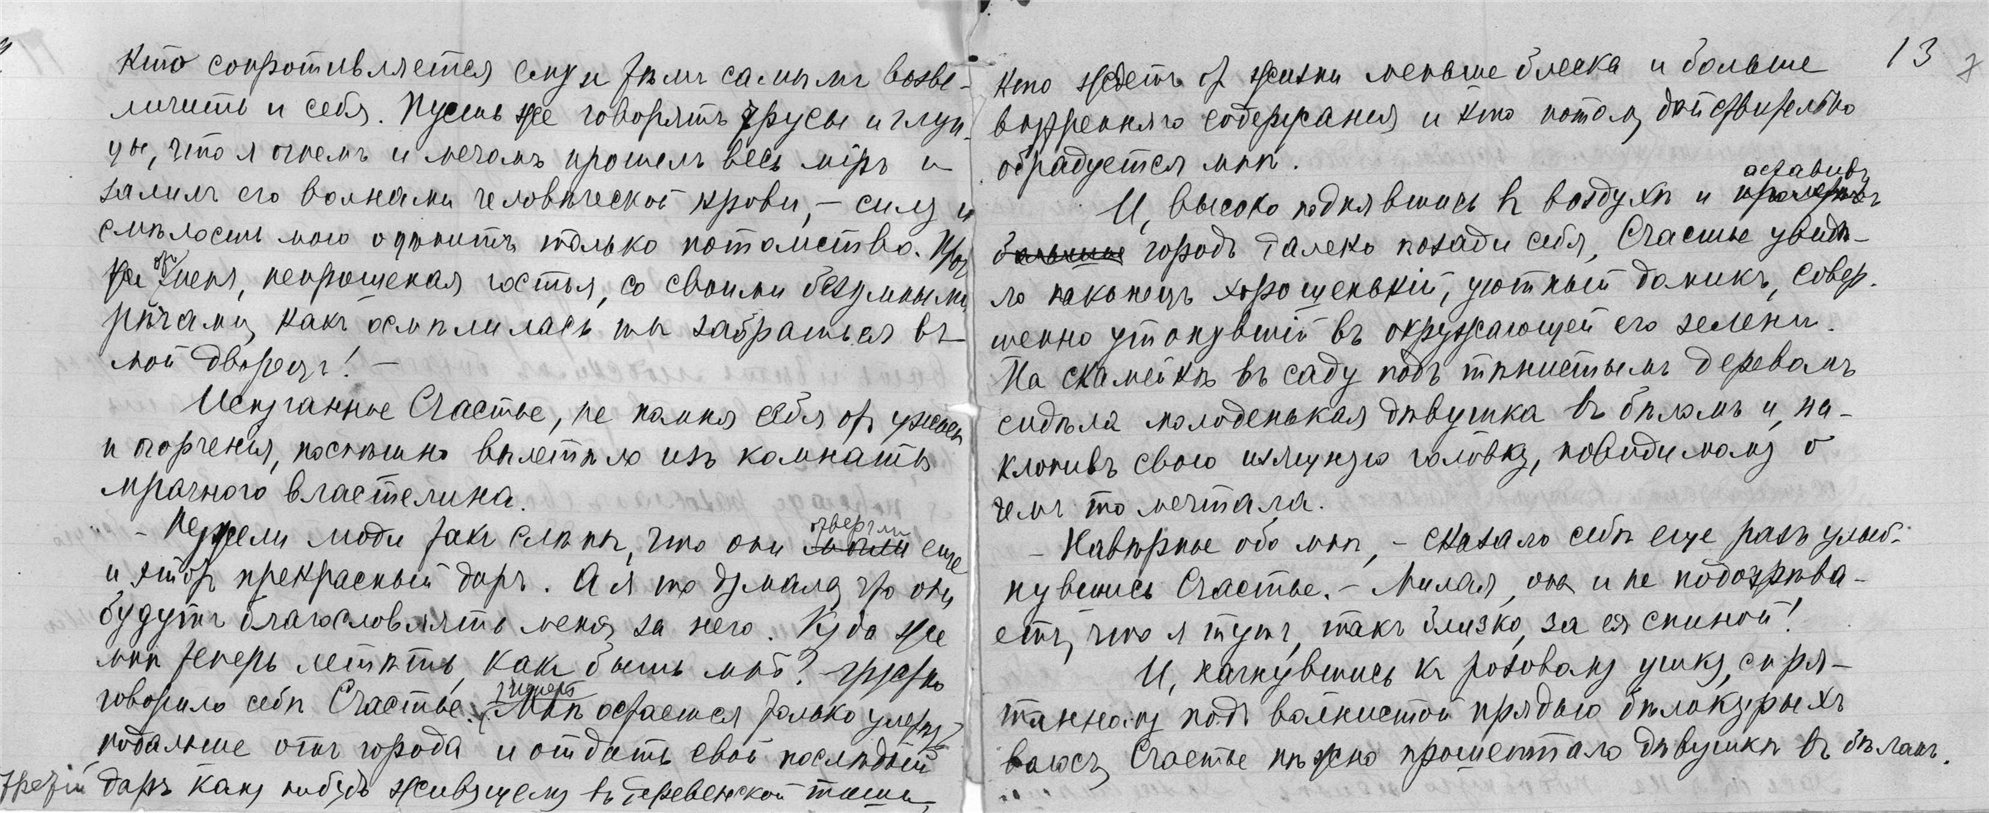 кто сопротивляется ему и тѣмъ самымъ возве-
личить и себя. Пусть же говорятъ трусы и глуп-
цы, что я огнемъ и мечомъ прошелъ весь міръ и
залилъ его волнами человѣческой крови, – силу и
смѣлость мою оцѣнитъ только потомство. Прочь
же отъ меня, непрошеная гостья, со своими безумными
рѣчами, какъ осмѣлилась ты забраться въ
мой дворецъ! –
Испуганное Счастье, не помня себя отъ ужаса
и огорченія, поспѣшно вылетѣло изъ комнаты
мрачнаго властелина.
– Неужели люди такъ слѣпы, что они отвергли еще
и этотъ прекрасный даръ. А я то думало, что они
будутъ благословлять меня за него. Куда же
мнѣ теперь летѣть, какъ быть мнѣ? – грустно
говорило себѣ Счастье. Мнѣ остается только улет
подальше отъ города и отдать свой послѣдній
третій даръ кому нибудь живущему въ деревенской тиши,
13
кто ждетъ отъ жизни меньше блеска и больше
внутренняго содержанія и кто потому дѣйствительно
обрадуется мнѣ.
И, высоко поднявшись въ воздухѣ и оставивъ
большие городъ далеко позади себя, Счастье увидѣ-
ло наконецъ хорошенькій, уютный домикъ, совер-
шенно утонувшій въ окружающей его зелени.
На скамейкѣ въ саду подъ тѣнистымъ деревомъ
сидѣла молоденькая дѣвушка въ бѣломъ и, на-
клонивъ свою изящную головку, повидимому о
чемъ то мечтала.
– Навѣрное обо мнѣ, – сказало себѣ еще разъ улыб-
нувшись Счастье. – Милая, она и не подозрѣва-
етъ, что я тутъ, такъ близко, за ея спиной!
И, нагнувшись къ розовому ушку, спря-
танному подъ волнистой прядью бѣлокурыхъ
волосъ, Счастье нѣжно прошептало дѣвушкѣ въ бѣломъ.